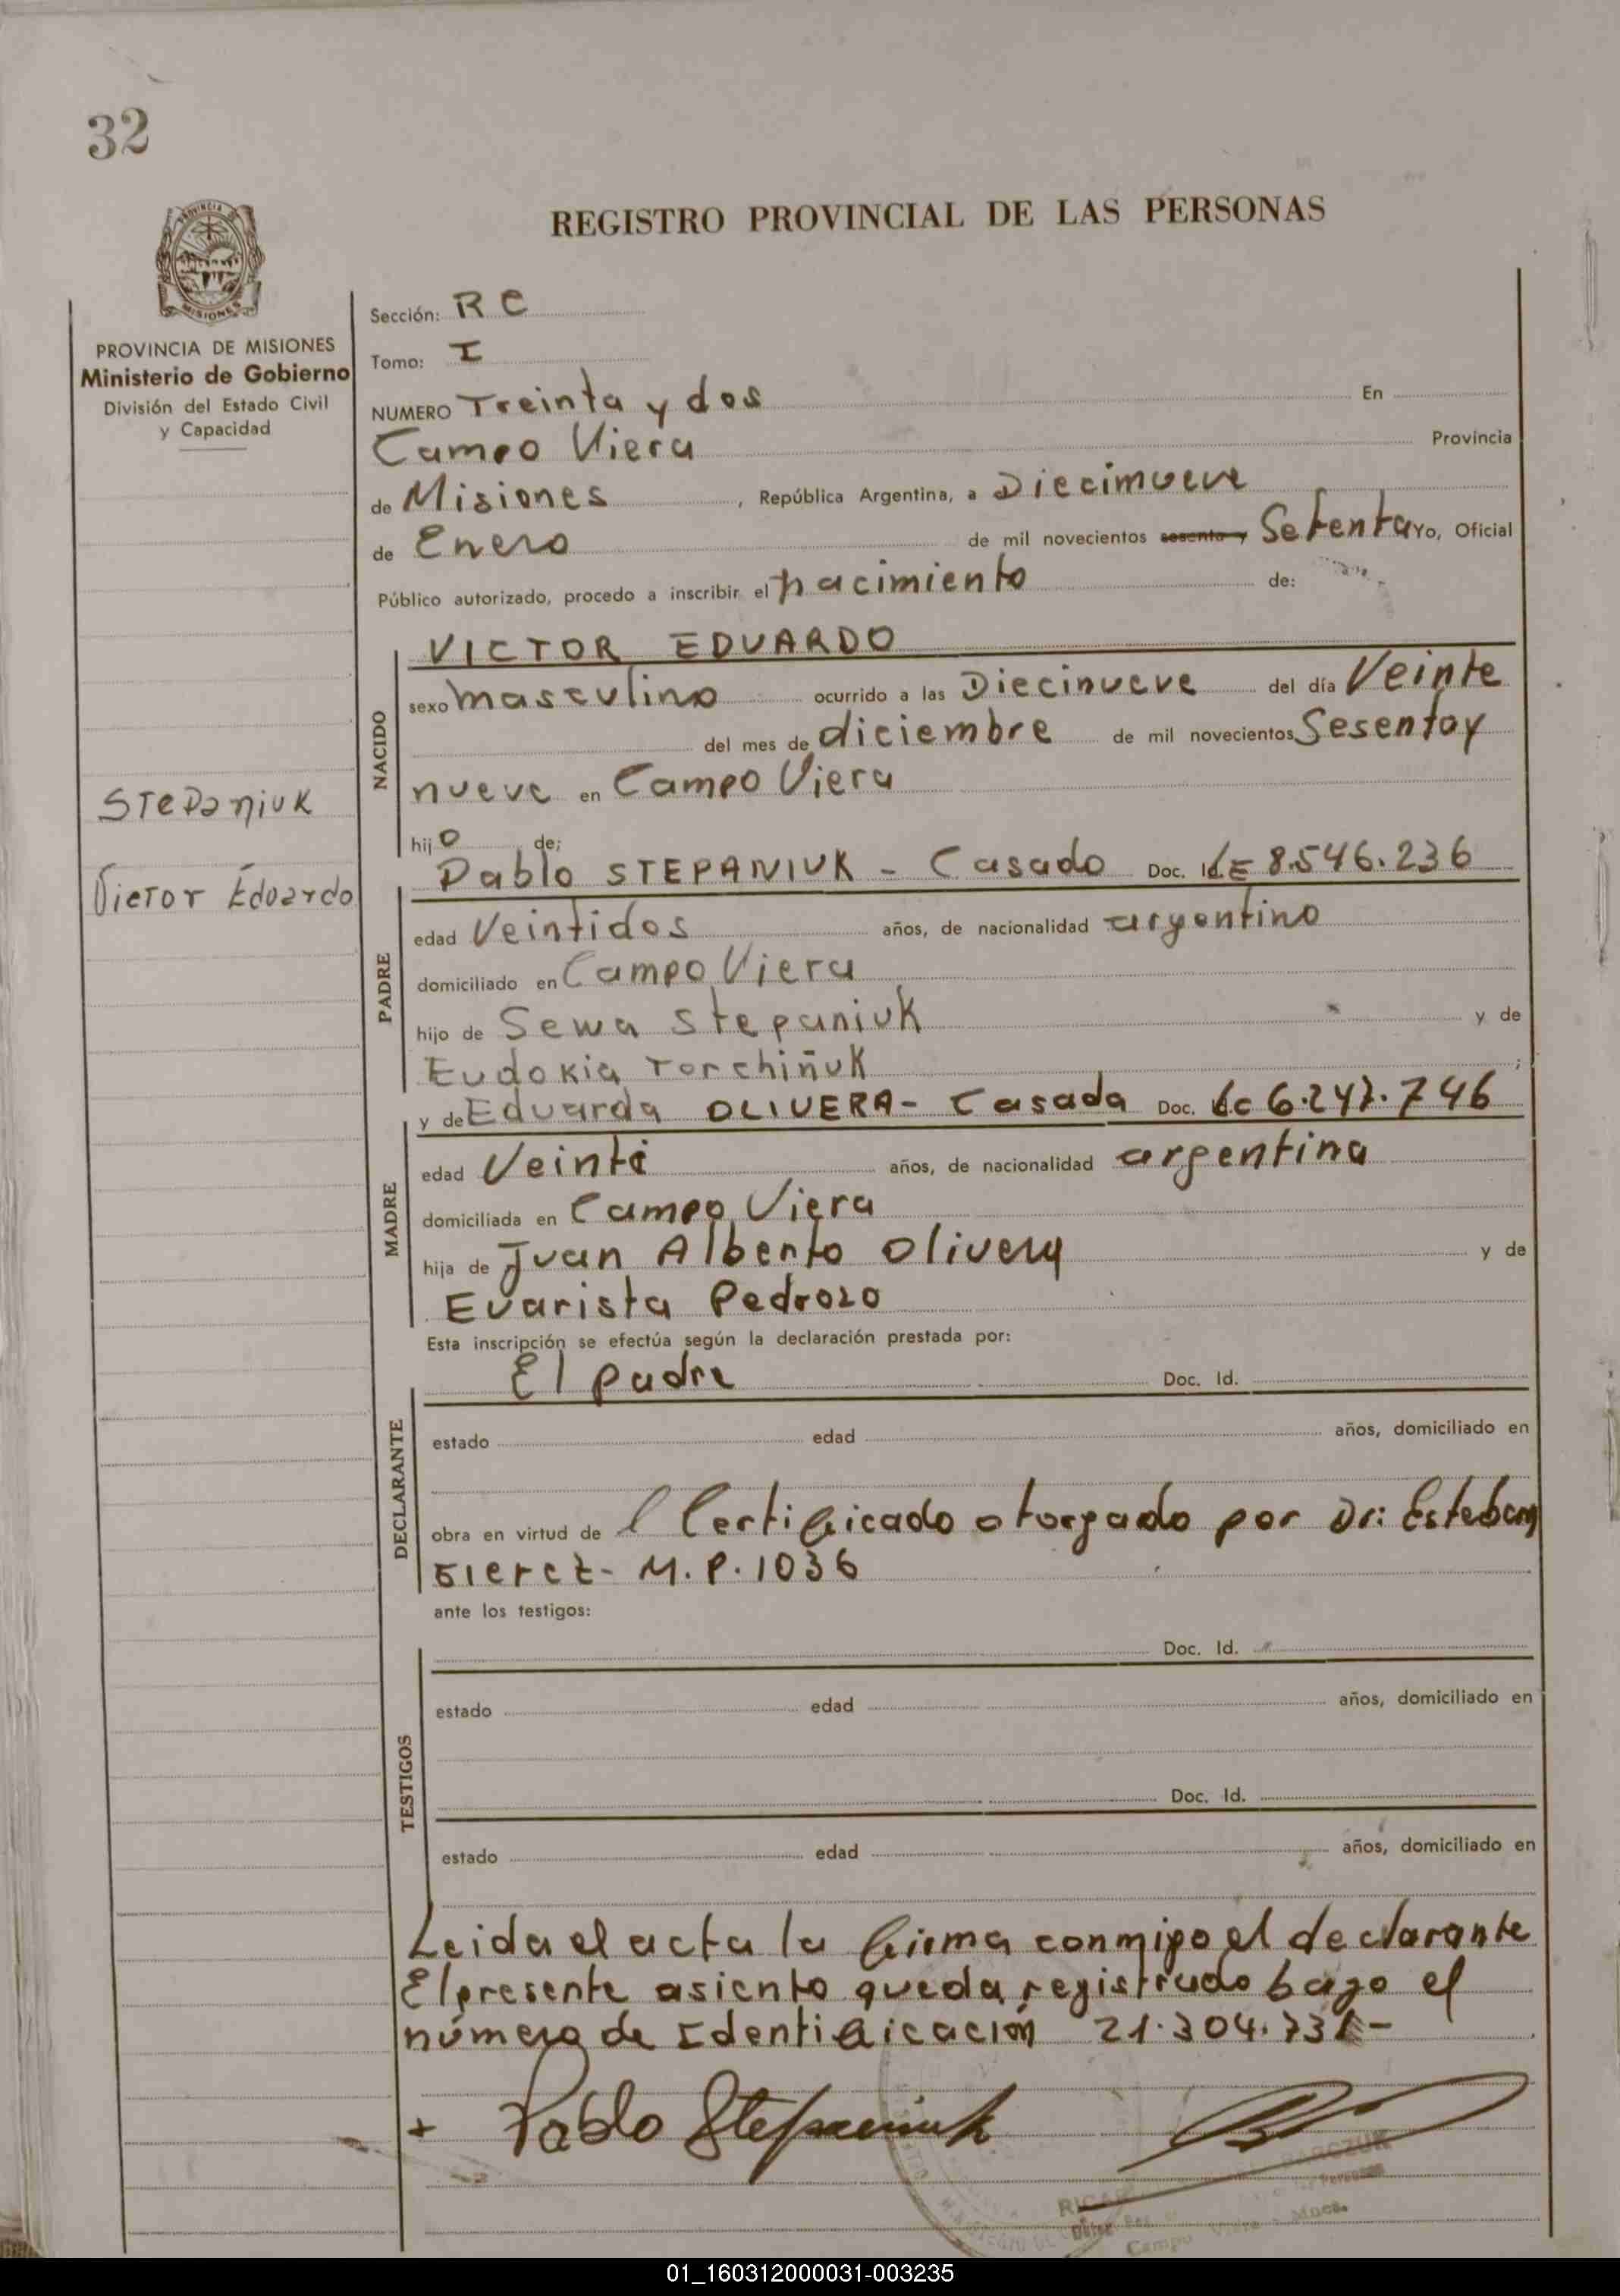 32
REGISTRO PROVINCIAL DE LAS PERSONAS
PROVINCIA DE MISIONES
Ministerio de Gobierno
División del Estado Civil
y Capacidad
Sección: R C
Tomo: I
NUMERO Treinta y dos En
Campo Viera Provincia
de Misiones , República Argentina, a Diecinueve
de Enero de mil novecientos sesenta y Setenta Yo, Oficial
Público autorizado, procedo a inscribir el nacimiento de:
NACIDO
VICTOR EDUARDO
sexo masculino ocurrido a las Diecinueve del día Veinte
del mes de diciembre de mil novecientos Sesenta y
nueve en Campo Viera
Stepaniuk
Victor Eduardo
hijo de;
PADRE
Pablo STEPANIUK - Casado Doc. Id. LE 8.546.236
edad Veintidos años, de nacionalidad argentino
domiciliado en Campo Viera
hijo de Sewa Stepaniuk y de
Eudokia Torchiñuk ;
MADRE
y de Eduarda OLIVERA - Casada Doc. LC 6.247.746
edad Veinte años, de nacionalidad argentina
domiciliada en Campo Viera
hija de Juan Alberto Olivera y de
Evarista Pedrozo
Esta inscripción se efectúa según la declaración prestada por:
DECLARANTE
El padre Doc. Id.
estado edad años, domiciliado en
obra en virtud de l Certificado otorgado por Dr: Esteban
M.P. 1036
ante los testigos:
TESTIGOS
Doc. Id.
estado edad años, domiciliado en
Doc. Id.
estado edad años, domiciliado en
Leida el acta la firma conmigo el declarante
El presente asiento queda registrado bajo el
número de Identificación 21.304.
Pablo Stepaniuk
Campo Viera
01_160312000031-003235